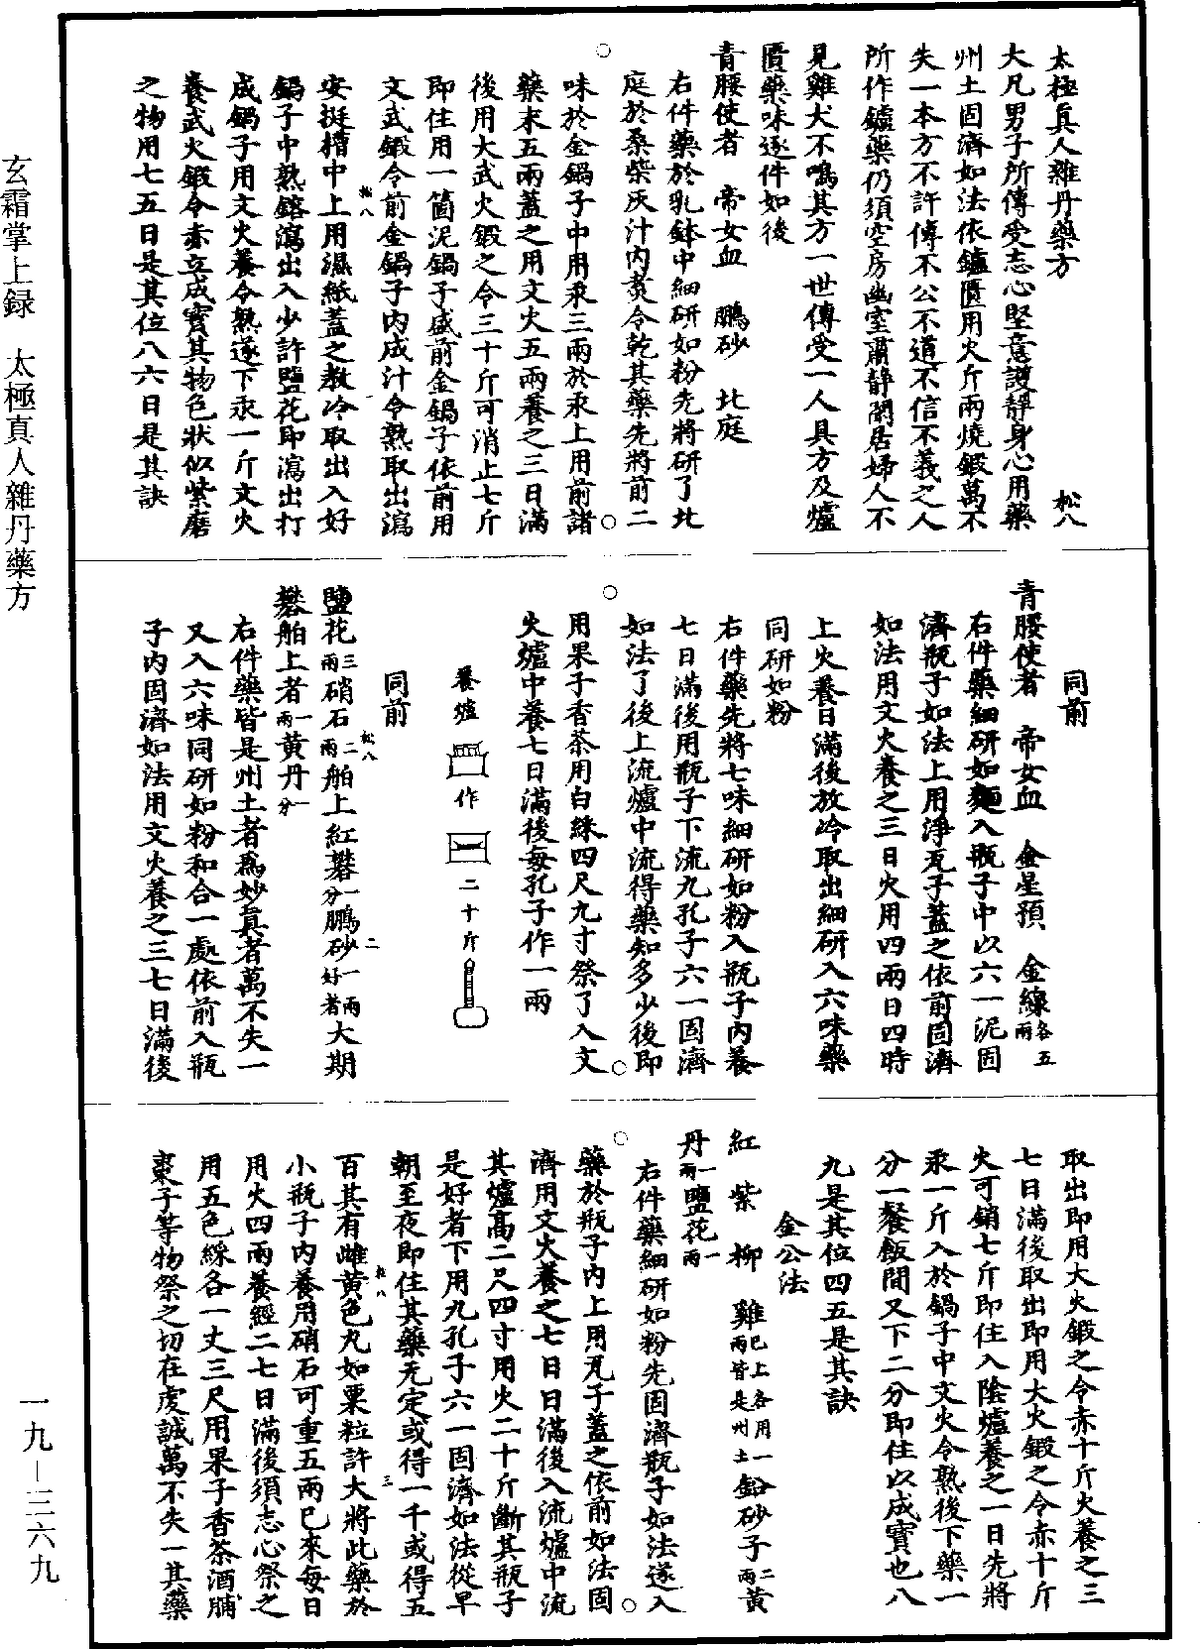 太極眞人雜丹藥方　松八
大凡男子所傳受志心堅意護靜身心用藥
州土固濟如法依鑪匱用火斤兩燒鍛萬不
失一本方不許傳不公不道不信不義之人
所作鑪藥仍須空房幽室肅靜閑居婦人不
見雞犬不鳴其方一世傳受一人具方及爐
匱藥味逐件如後
青腰使者　帝女血　鵬砂　北庭
右件藥於乳鉢中細研如粉先將研了北
庭於桑柴灰汁內煑令乾其藥先將前二
味於金鍋子中用汞三兩於汞上用前諸
藥末五兩蓋之用文火五兩養之三日滿
後用大武火鍛之令三十斤可消止七斤
即住用一箇泥鍋子盛前金鍋子依前用
文武鍛令前金鍋子內成汁令熟取出瀉
松八
安挺槽中上用濕紙蓋之教冷取出入好
鍋子中熟鎔瀉出入少許鹽花即瀉出打
成鍋子用文火養令熟遂下汞一斤文火
養武火鍛令赤立成寳其物色狀似紫磨
之物用七五日是其位八六日是其訣
同前
青腰使者　帝女血　金星預　金線各五兩
右件藥細研如麵入瓶子中以六一泥固
濟瓶子如法上用淨瓦子蓋之依前固濟
如法用文火養之三日火用四兩日四時
上火養日滿後放冷取出細研入六味藥
同研如粉
右件藥先將七味細研如粉入瓶子內養
七日滿後用瓶子下流九孔子六一固濟
如法了後上流爐中流得藥知多少後即
用果子香茶用白綵四尺九寸祭了入文
火爐中養七日滿後每孔子作一兩
養爐　作　二十斤
同前
松八　二
鹽花三兩硝石二兩舶上紅礬一分鵬砂一兩好者大期
礬舶上者一兩黃丹一分
右件藥皆是州土者爲妙眞者萬不失一
又入六味同研如粉和合一處依前入瓶
子內固濟如法用文火養之三七日滿後
取出即用大火鍛之令赤十斤火養之三
七日滿後取出即用大火鍛之令赤十斤
火可銷七斤即住入陰爐養之一日先將
汞一斤入於鍋子中文火令熟後下藥一
分一餐飯間又下二分即住以成寳也八
九是其位四五是其訣
金公法
紅紫柳雞巳上各用一兩皆是州土鉛砂子二兩黃
丹一兩鹽花一兩
右件藥細研如粉先固濟瓶子如法遂入
藥於瓶子內上用瓦子蓋之依前如法固
濟用文火養之七日日滿後入流爐中流
其爐高二尺四寸用火二十斤斷其瓶子
是好者下用九孔子六一固濟如法從早
朝至夜即住其藥无定或得一千或得五
松八　三
百其有雌黃色丸如粟粒許大將此藥於
小瓶子內養用硝石可重五兩已來每日
用火四兩養經二七日滿後須志心祭之
用五色綵各一丈三尺用果子香茶酒脯
棗子等物祭之切在虔誠萬不失一其藥
玄霜掌上録　太極真人雜丹藥方
一九－三六九